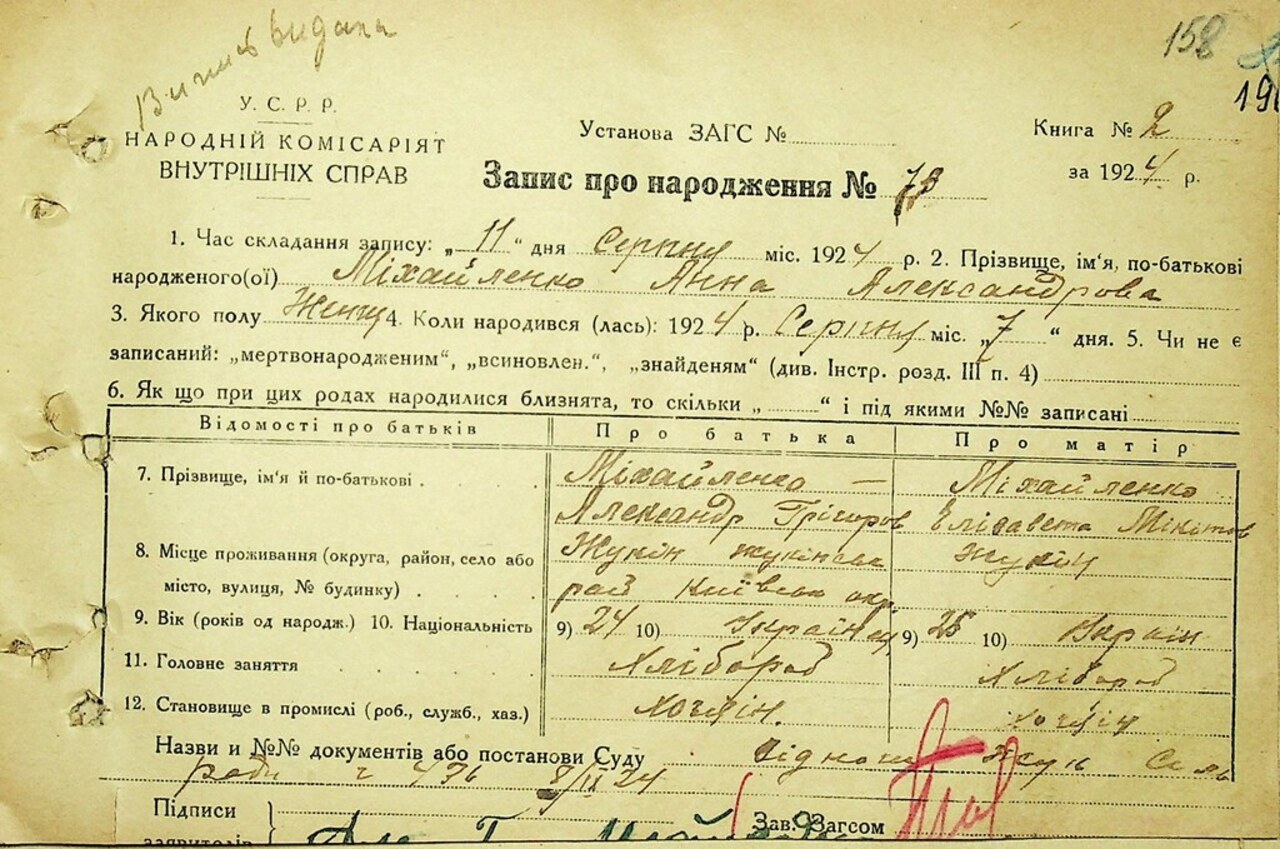 Витяг видана
158
У. С. Р. Р.
НАРОДНІЙ КОМІСАРІЯТ
ВНУТРІШНІХ СПРАВ
Установа ЗАГС №
Книга № 2
за 1924 р.
Запис про народження № 73
1. Час складання запису: „ 11 “ дня Серпня міс. 1924 р. 2. Прізвище, ім'я, по-батькові
народженого(ої) Міхайленко Анна Александрова
3. Якого полу Женщ 4. Коли народився (лась): 1924 р. Серпня міс. „ 7 “ дня. 5. Чи не є
записаний: „мертвонародженим“, „всиновлен.“, „знайденям“ (див. Інстр. розд. III п. 4)
6. Як що при цих родах народилися близнята, то скільки „ “ і під якими №№ записані
Відомості про батьків Про батька Про матір
7. Прізвище, ім'я й по-батькові Міхайленко — Міхайленко
Александр Грігоров Елізавета Мікітов
8. Місце проживання (округа, район, село або Жукін жукінськ Жукін
місто, вулиця, № будинку) рай Київськ окр.
9. Вік (років од народж.) 10. Національність 9) 24 10) Українец 9) 25 10) Украін
11. Головне заняття Хлібороб Хлібороб
12. Становище в промислі (роб., служб., хаз.)
Назви и №№ документів або постанови Суду Жук Сель
ради 8/IX 24
Підписи
заявителів
Зав. Загсом